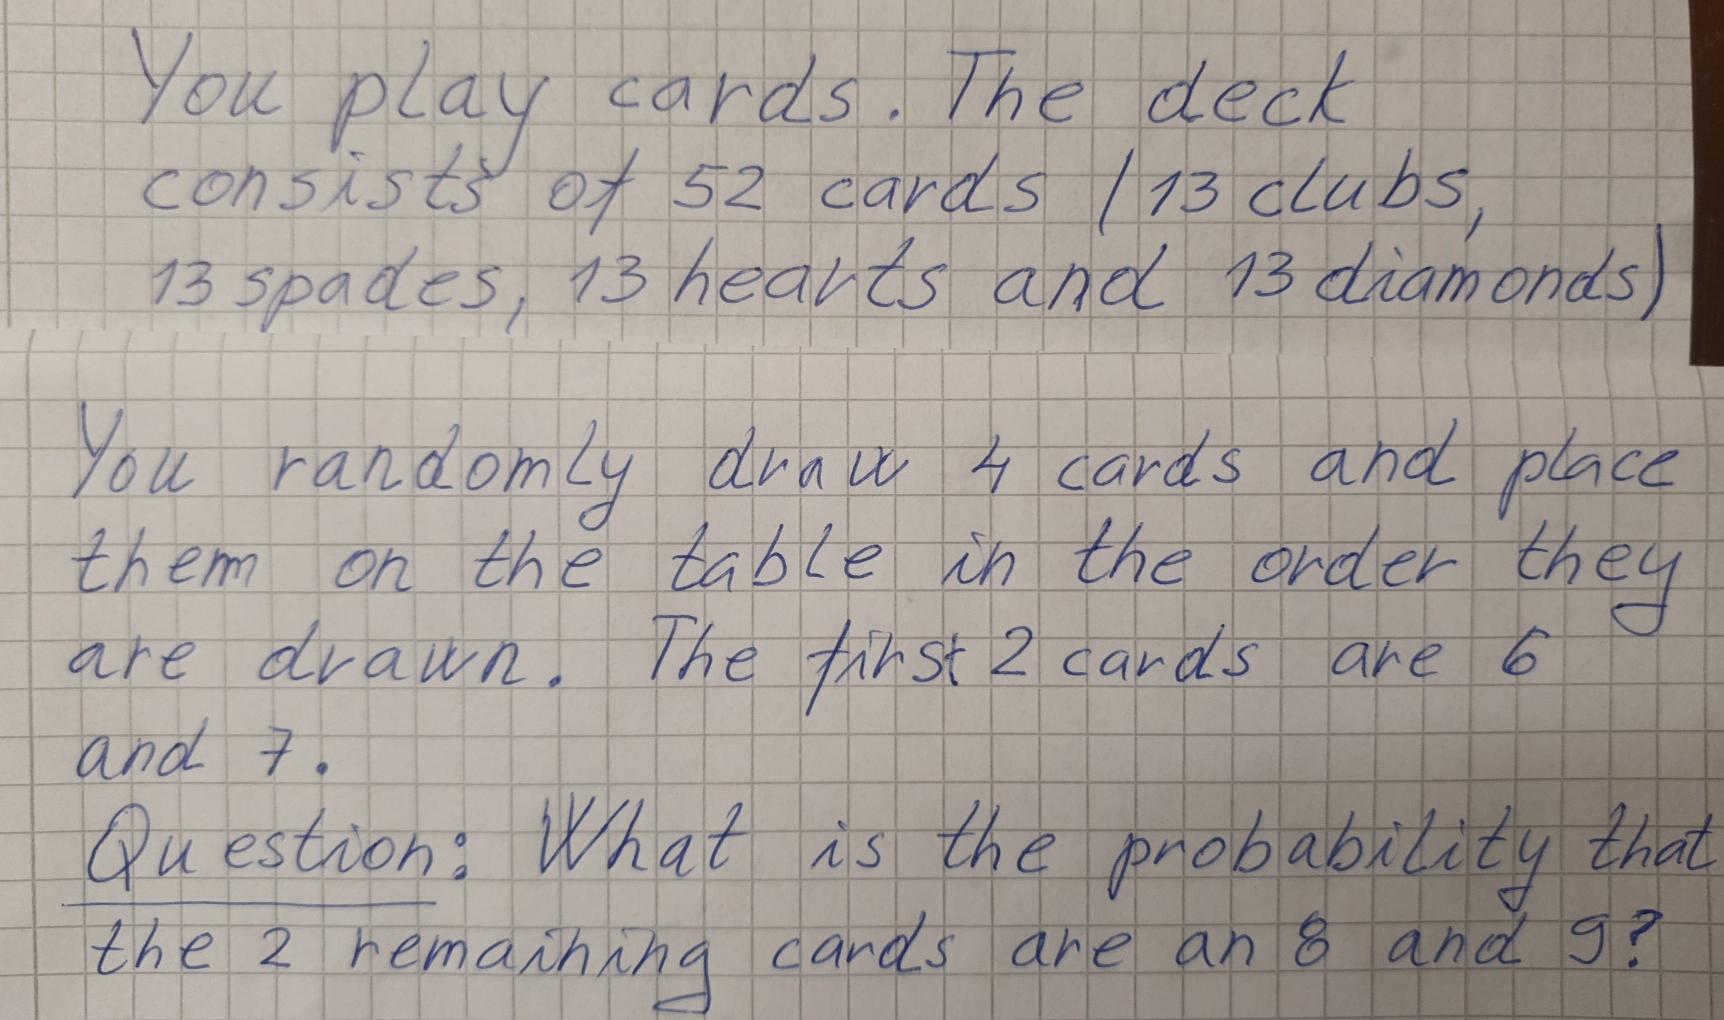 You play cards. The deck
consists of 52 cards (13 clubs,
13 spades, 13 hearts and 13 diamonds)
You randomly draw 4 cards and place
them on the table in the order they
are drawn. The first 2 cards are 6
and 7.
Question: What is the probability that
the 2 remaining cards are an 8 and 9?